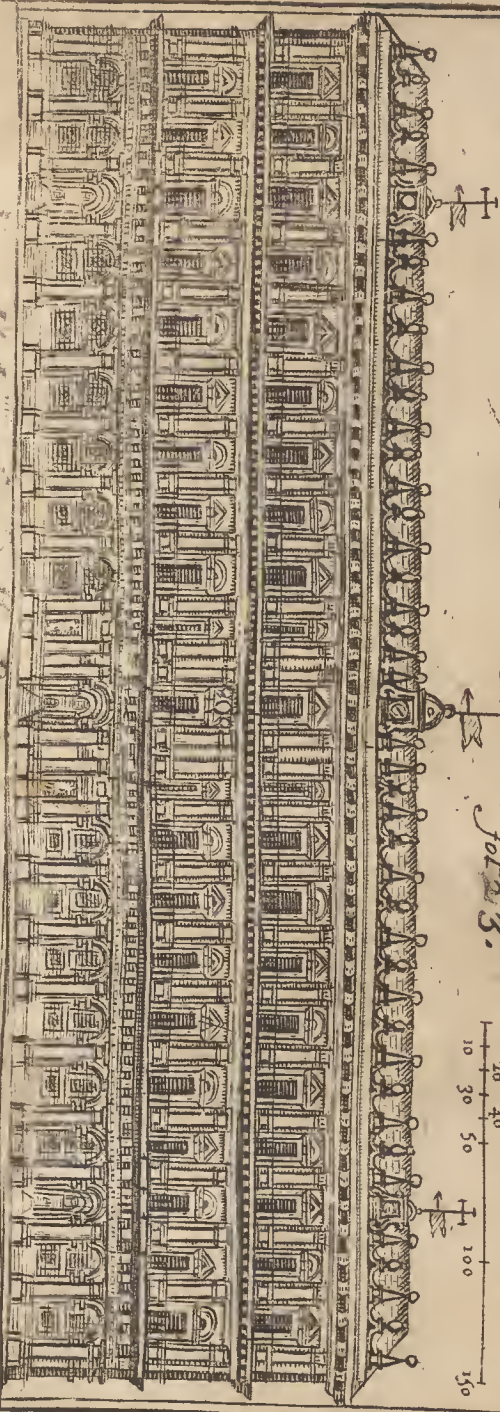 fol 23.
10 20 30 40 50 100 150